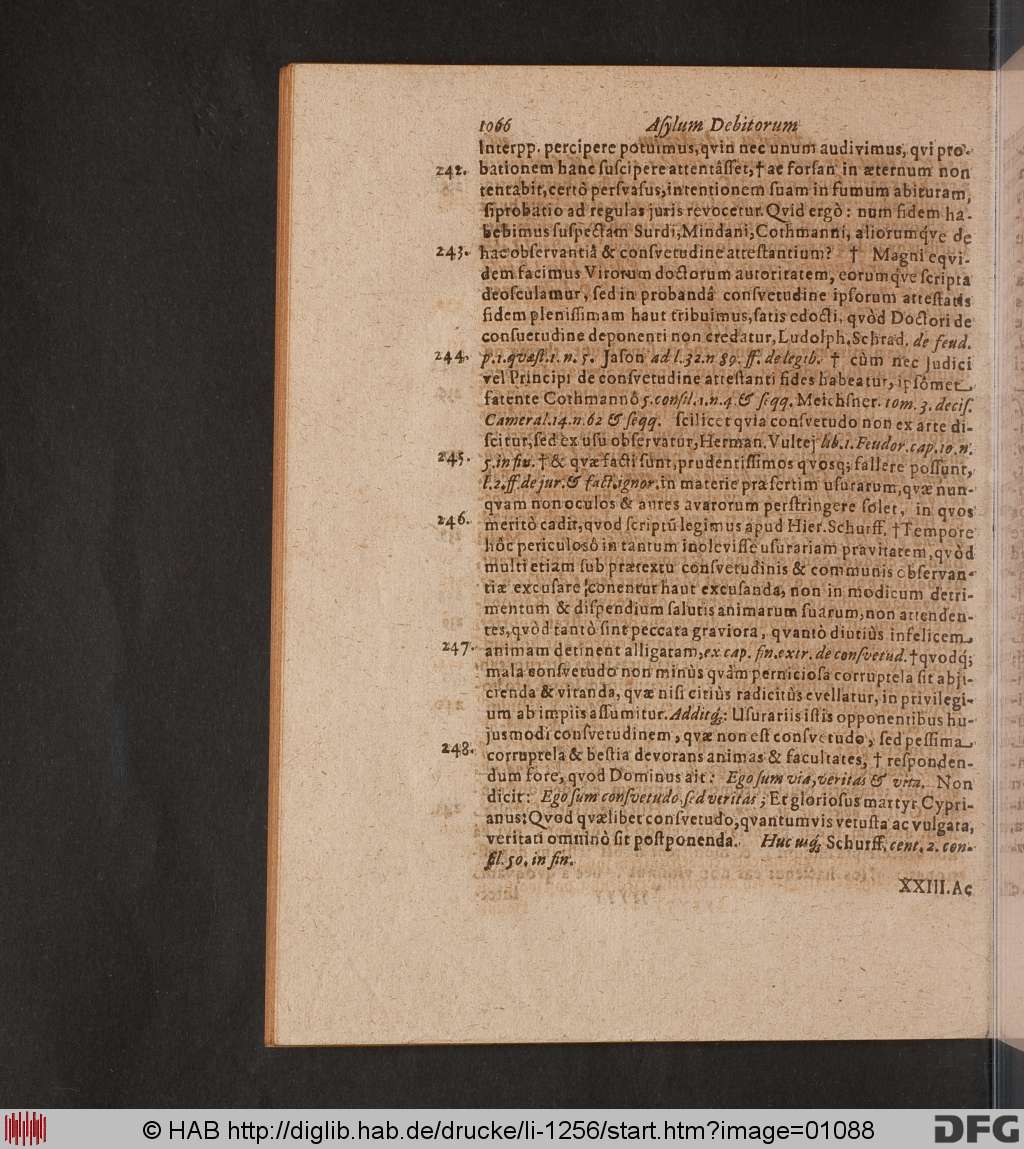 1066 Aſylum Debitorum
Interpp. percipere potuimus, qvin nec unum audivimus, qvi pro-
242. bationem hanc ſuſcipere attentâſſet, † ac forſan in æternum non
tentabit, certò perſvaſus, intentionem ſuam in fumum abituram,
ſi probatio ad regulas juris revocetur. Qvid ergò: num fidem ha-
bebimus ſuſpectam Surdi, Mindani, Cothmanni, aliorumqve de
243. hac obſervantiâ & conſvetudine atteſtantium? † Magni eqvi-
dem facimus Virorum doctorum autoritatem, eorumqve ſcripta
deoſculamur, ſed in probandâ conſvetudine ipſorum atteſtatis
fidem pleniſſimam haut tribuimus, ſatis edocti, qvòd Doctori de
conſuetudine deponenti non credatur, Ludolph. Schrad. de feud.
244. p. 1. qvæſt. 1. n. 5. Jaſon ad l. 32. n 89. ff. de legib. † cùm nec Judici
vel Principi de conſvetudine atteſtanti fides habeatur, ipſômet
fatente Cothmannô 5. conſil. 1. n. 4. & ſeqq. Meichſner. tom. 3. deciſ.
Cameral. 14. n. 62 & ſeqq. ſcilicet qvia conſvetudo non ex arte di-
ſcitur, ſed ex uſu obſervatur, Herman. Vultej lib. 1. Feudor. cap. 10. n.
245. 5. in fin. † & qvæ facti ſunt, prudentiſſimos qvosq; fallere poſſunt,
l. 2. ff. de jur. & fact. ignor. in materie præſertim uſurarum, qvæ nun-
qvam non oculos & aures avarorum perſtringere ſolet, in qvos
246. meritò cadit, qvod ſcriptū legimus apud Hier. Schurff. † Tempore
hôc periculosô in tantum inoleviſſe uſurariam pravitatem, qvòd
multi etiam ſub prætextu conſvetudinis & communis obſervan-
tiæ excuſare conentur haut excuſanda, non in modicum detri-
mentum & diſpendium ſalutis animarum ſuarum, non attenden-
tes, qvòd tantò ſint peccata graviora, qvantò diutiùs infelicem
247. animam detinent alligatam, ex cap. fin. extr. de conſvetud. † qvodq;
mala conſvetudo non minùs qvàm pernicioſa corruptela ſit abji-
cienda & vitanda, qvæ niſi citiùs radicitùs evellatur, in privilegi-
um ab impiis aſſumitur. Additq;: Uſurariis iſtis opponentibus hu-
jusmodi conſvetudinem, qvæ non eſt conſvetudo, ſed peſſima
248. corruptela & beſtia devorans animas & facultates, † reſponden-
dum fore, qvod Dominus ait: Ego ſum via, veritas & vita. Non
dicit: Ego ſum conſvetudo, ſed veritas; Et glorioſus martyr Cypri-
anus: Qvod qvælibet conſvetudo, qvantumvis vetuſta ac vulgata,
veritati omninò ſit poſtponenda. Huc uſq; Schurff. cent. 2. con-
ſil. 50. in fin.
XXIII. Ac
© HAB http://diglib.hab.de/drucke/li-1256/start.htm?image=01088
DFG